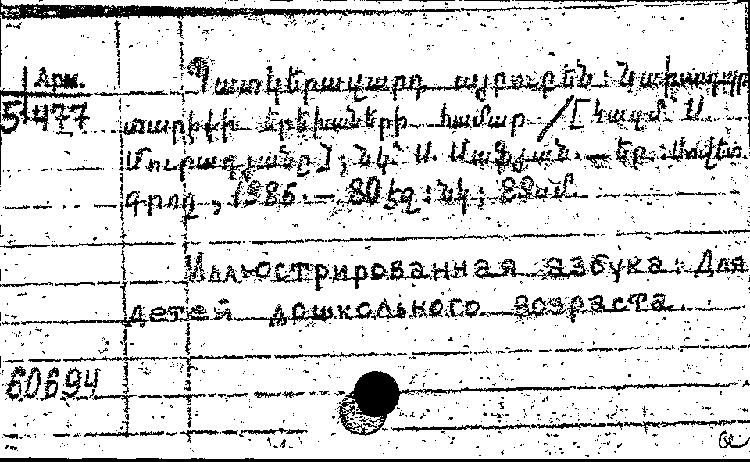 Арм.
5-477
Պատկերազարդ այբուբեն: Նախադպրոց
տարիքի երեխաների համար / [Կազմ՝ Ս.
Մուրադյանը]; նկ՝ Ս. Սաֆյան. — Եր.: Սովետ.
գրող, 1986. — 80 էջ: նկ; 29սմ
Иллюстрированная азбука: Для
детей дошкольного возраста.
60694